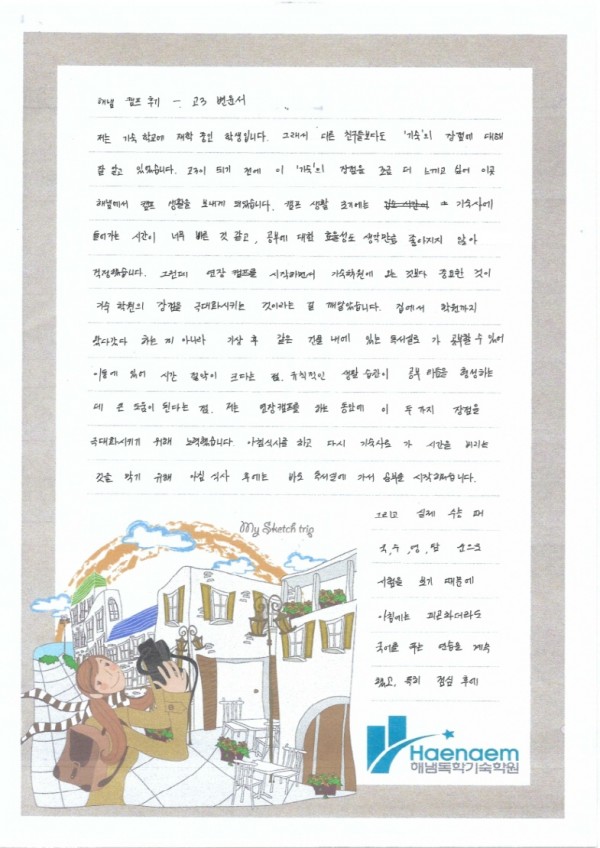 해냄 캠프 후기 - 고3 변윤서
저는 기숙 학교에 재학 중인 학생입니다. 그래서 다른 친구들보다도 '기숙'의 장점에 대해
잘 알고 있었습니다. 고3이 되기 전에 이 '기숙'의 장점을 조금 더 느끼고 싶어 이곳
해냄에서 캠프 생활을 보내게 되었습니다. 캠프 생활 초기에는 기숙사에
들어가는 시간이 너무 빠른 것 같고, 공부에 대한 효율성도 생각만큼 좋아지지 않아
걱정했습니다. 그런데 연장 캠프를 시작하면서 기숙학원에 오는 것보다 중요한 것이
기숙 학원의 장점을 극대화시키는 것이라는 걸 깨달았습니다. 집에서 학원까지
왔다갔다 하는 게 아니라 기상 후 같은 건물 내에 있는 독서실로 가 공부할 수 있어
이동에 있어 시간 절약이 크다는 점. 규칙적인 생활 습관이 공부 마음을 형성하는
데 큰 도움이 된다는 점. 저는 연장캠프를 하는 동안에 이 두 가지 장점을
극대화시키기 위해 노력했습니다. 아침식사를 하고 다시 기숙사로 가 시간을 버리는
것을 막기 위해 아침 식사 후에는 바로 독서실에 가서 공부를 시작하였습니다.
그리고 실제 수능 때
국, 수, 영, 탐 순으로
시험을 보기 때문에
아침에는 피곤하더라도
국어를 푸는 연습을 계속
했고, 특히 점심 후에
My Sketch trip
Haenaem
해냄독학기숙학원